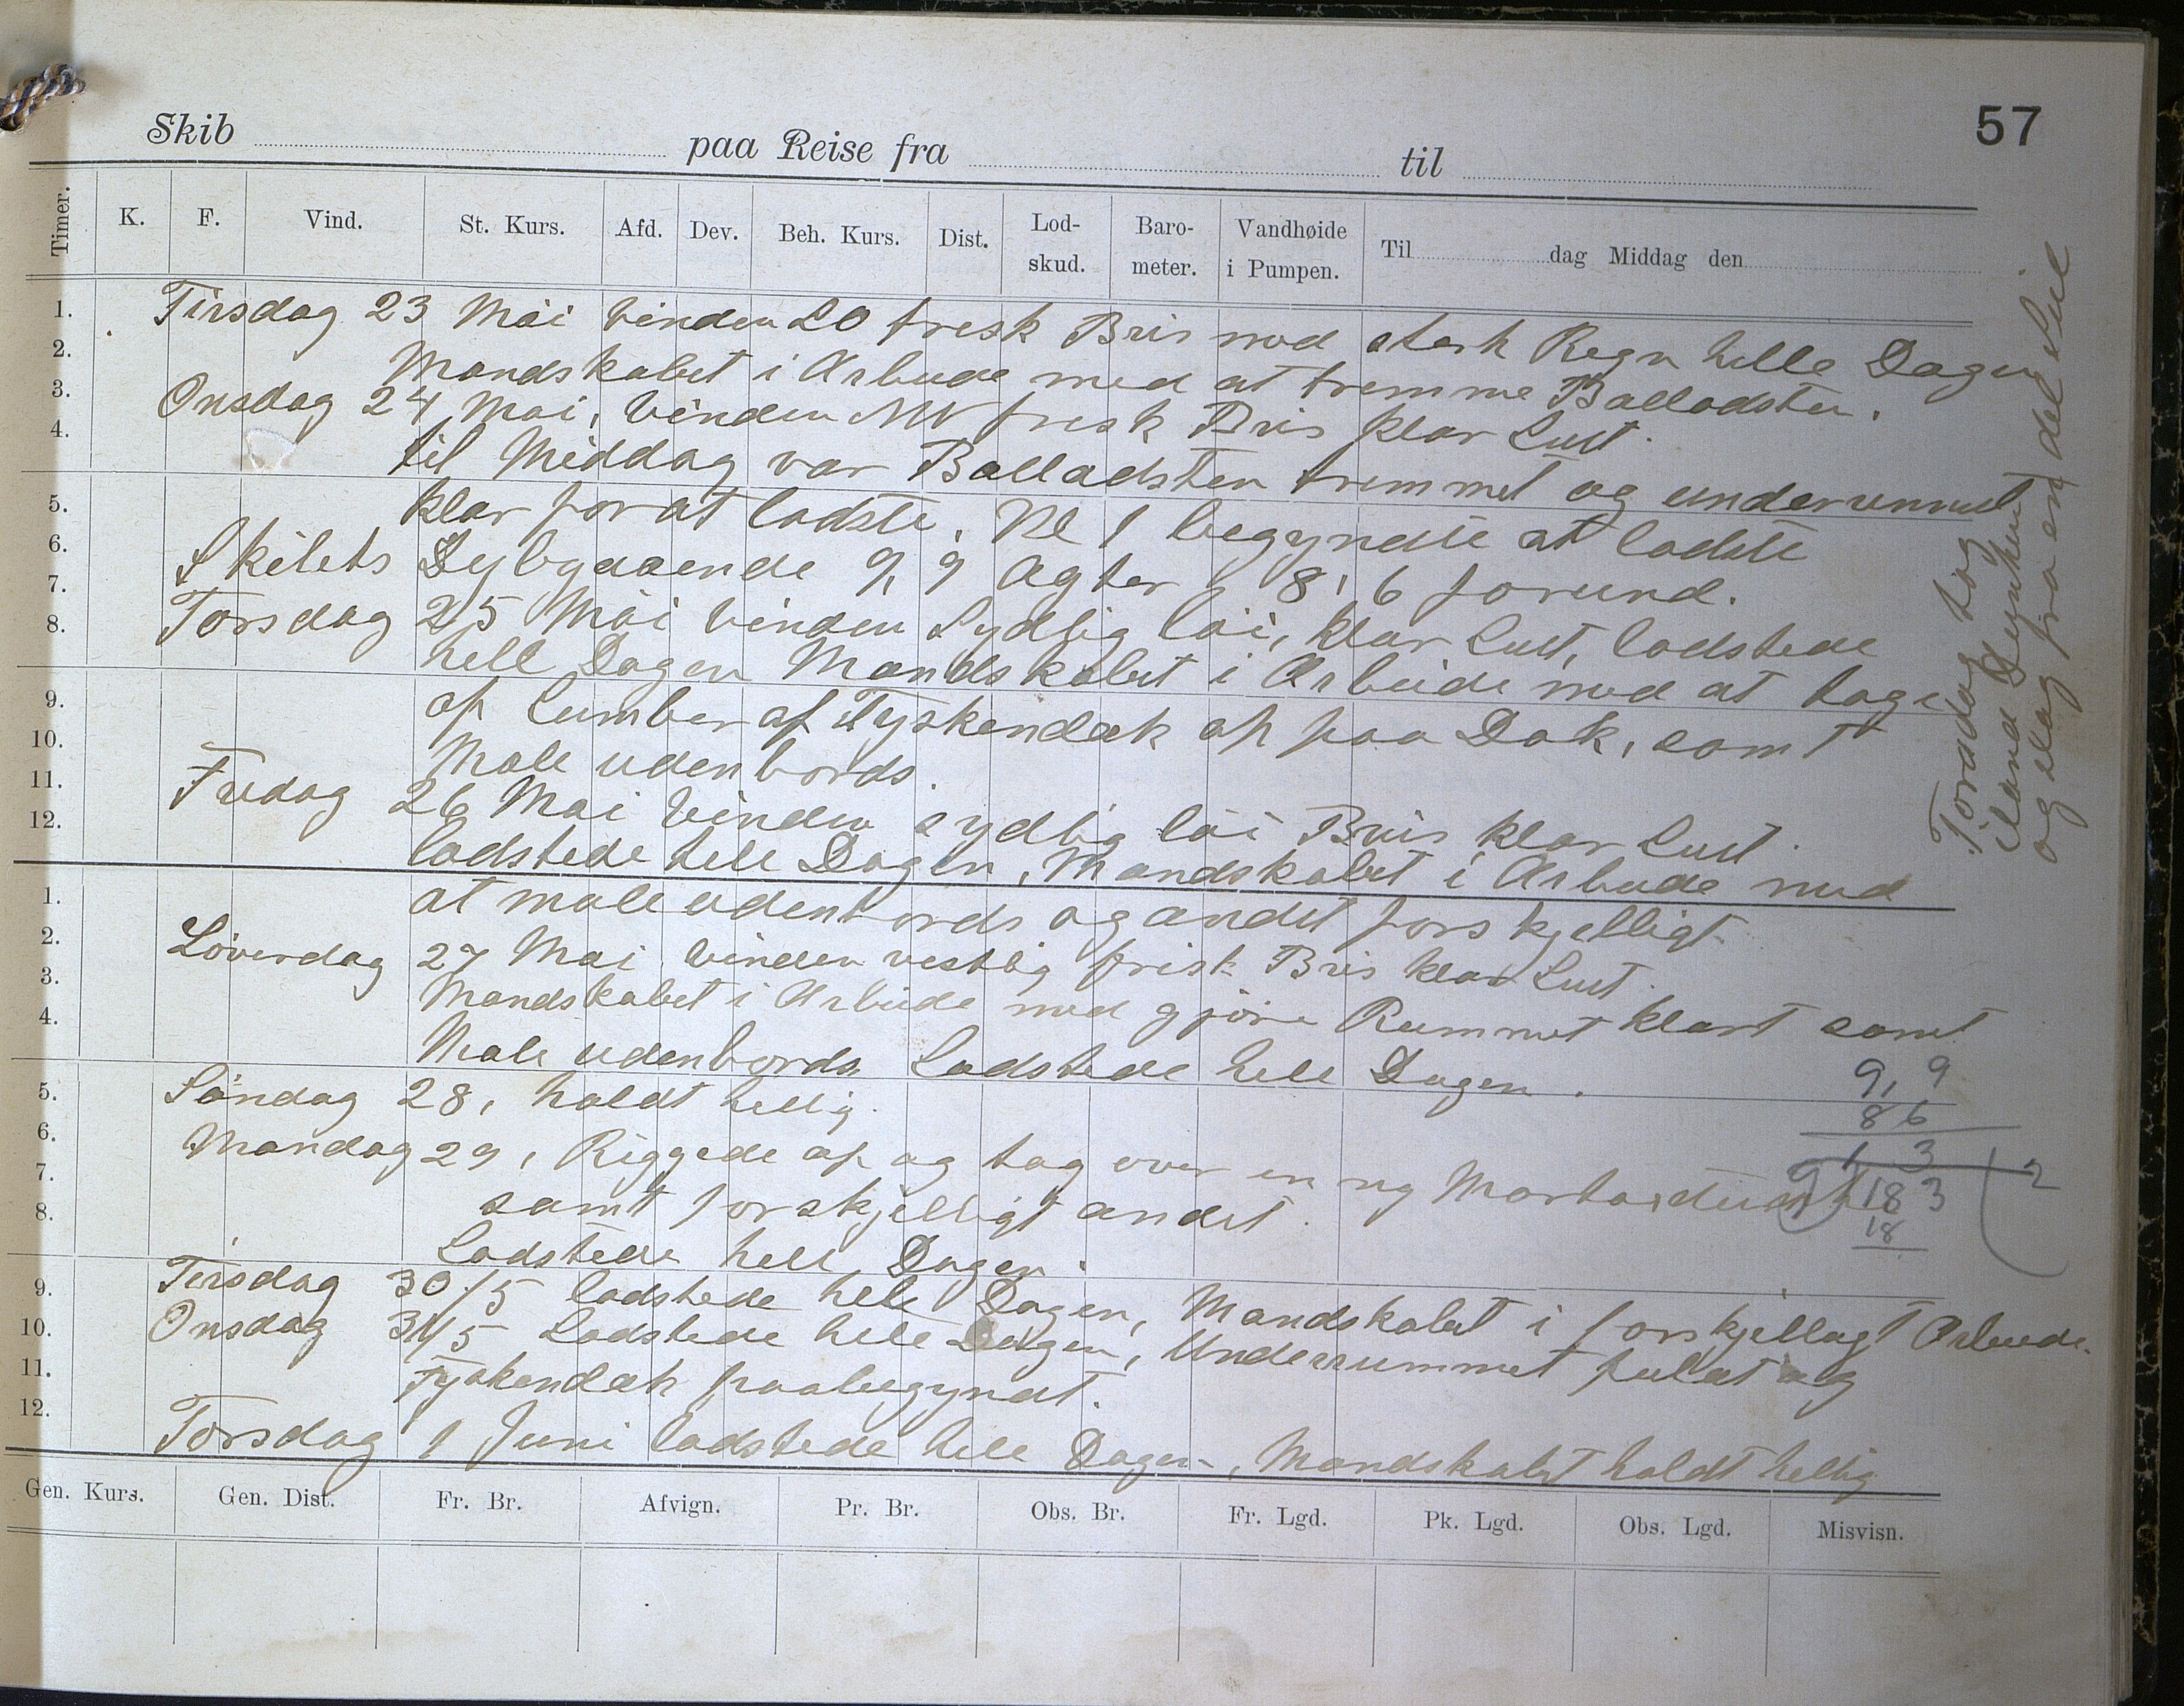 57
Skib paa Reise fra til
Timer. K. F. Vind. St. Kurs. Afd. Dev. Beh. Kurs. Dist. Lod-skud. Baro-meter. Vandhøide i Pumpen. Til dag Middag den
1. Tirsdag 23 Mai Vinden SO frisk Bris med sterk Regn helle Dagen
2. Mandskabet i Arbeide med at tremme Balladsten.
3. Onsdag 24 Mai, Vinden NW frisk Bris klar Luft.
4. til Middag var Balladsten tremmet og underrumet
5. klar for at ladste. Kl 1 begyndte at ladste
6. Skibets Dybgaaende 9,9 Agter 8,6 forund.
7. Torsdag 25 Mai Vinden Sydlig löi, klar Luft, ladstede
8. hell Dagen Mandskabet i Arbeide med at tage
9. op Lumber af Tyskendæk op paa Dæk, samt
10. Male udenbords.
11. Fredag 26 Mai Vinden sydlig löi Bris klar Luft.
12. ladstede hele Dagen, Mandskabet i Arbeide med
1. at male udenbords og andet forskjelligt.
2. Löverdag 27 Mai Vinden vestlig frisk Bris klar Luft.
3. Mandskabet i Arbeide med gjöre Rummet klart samt
4. Male udenbords Ladstede hele Dagen.
5. Söndag 28, holdt hellig.
6. Mandag 29, Riggede op og tog over en ny
7. samt forskjelligt andet.
8. Ladstede hele Dagen.
9. Tirsdag 30/5 ladstede hele Dagen, Mandskabet i forskjellagt Arbeide.
10. Onsdag 31/5 Ladstede hele Dagen, Underrummet fuldt og
11. Tyskendæk paabegyndt.
12. Torsdag 1 Juni ladstede hele Dagen, Mandskabet holdt hellig
Torsdag tog
iland
og slag fra en del Seil
9,9
86
1 3
9 183 2
18
Gen. Kurs. Gen. Dist. Fr. Br. Afvign. Pr. Br. Obs. Br. Fr. Lgd. Pk. Lgd. Obs. Lgd. Misvisn.